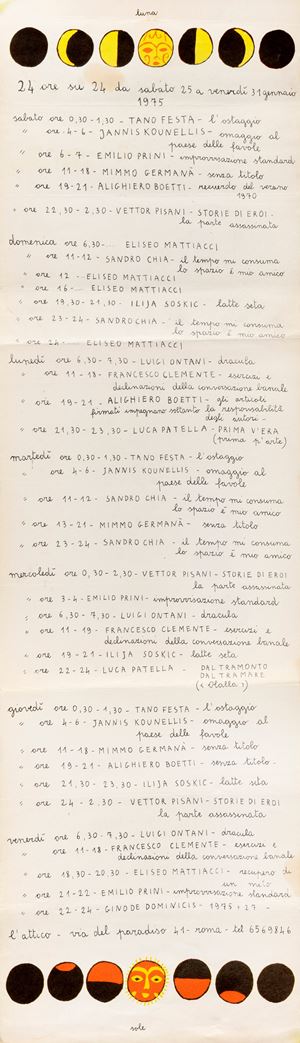 luna
24 ore su 24 da sabato 25 a venerdì 31 gennaio
1975
sabato ore 0,30-1,30 - TANO FESTA - l'ostaggio
" ore 4-6 - JANNIS KOUNELLIS - omaggio al
paese delle favole
" ore 6-7 - EMILIO PRINI - improvvisazione standard
" ore 11-18 - MIMMO GERMANÀ - senza titolo
" ore 19-21 - ALIGHIERO BOETTI - recuerdo del verano
1970
" ore 22,30-2,30 - VETTOR PISANI - STORIE DI EROI -
la parte assassinata
domenica ore 6,30-.... ELISEO MATTIACCI
" ore 11-12 - SANDRO CHIA - il tempo mi consuma
lo spazio è mio amico
" ore 12 - ELISEO MATTIACCI
" ore 16 - ELISEO MATTIACCI
" ore 19,30-21,30 - ILIJA SOSKIC - latte seta
" ore 23-24 - SANDRO CHIA - il tempo mi consuma
lo spazio è mio amico
" ore 24 - ELISEO MATTIACCI
lunedì ore 6,30-7,30 - LUIGI ONTANI - dracula
" ore 11-18 - FRANCESCO CLEMENTE - esercizi e
declinazioni della conversazione banale
" ore 19-21 - ALIGHIERO BOETTI - gli articoli
firmati impegnano soltanto la responsabilità
degli autori -
" ore 21,30-23,30 - LUCA PATELLA - PRIMA V'ERA
(prima p'arte)
martedì ore 0,30-1,30 - TANO FESTA - l'ostaggio
" ore 4-6 - JANNIS KOUNELLIS - omaggio al
paese delle favole
" ore 11-12 - SANDRO CHIA - il tempo mi consuma
lo spazio è mio amico
" ore 13-21 - MIMMO GERMANÀ - senza titolo
" ore 23-24 - SANDRO CHIA - il tempo mi consuma
lo spazio è mio amico
mercoledì ore 0,30-2,30 - VETTOR PISANI - STORIE DI EROI
la parte assassinata
" ore 3-4 - EMILIO PRINI - improvvisazione standard
" ore 6,30-7,30 - LUIGI ONTANI - dracula
" ore 11-19 - FRANCESCO CLEMENTE - esercizi e
declinazioni della conversazione banale
" ore 19-21 - ILIJA SOSKIC - latte seta
" ore 22-24 - LUCA PATELLA - DAL TRAMONTO
DAL TRAMARE
giovedì ore 0,30-1,30 - TANO FESTA - l'ostaggio
" ore 4-6 - JANNIS KOUNELLIS - omaggio al
paese delle favole
" ore 11-18 - MIMMO GERMANÀ - senza titolo
" ore 19-21 - ALIGHIERO BOETTI - senza titolo -
" ore 21,30-23,30 - ILIJA SOSKIC - latte seta
" ore 24-2,30 - VETTOR PISANI - STORIE DI EROI
la parte assassinata
venerdì ore 6,30-7,30 - LUIGI ONTANI - dracula
" ore 11-18 - FRANCESCO CLEMENTE - esercizi e
declinazioni della conversazione banale
" ore 18,30-20,30 - ELISEO MATTIACCI - recupero di
un mito
" ore 21-22 - EMILIO PRINI - improvvisazione standard
" ore 22-24 - GINO DE DOMINICIS - 1975 + 27 -
l'attico - via del paradiso 41 - roma - tel 6569846
sole